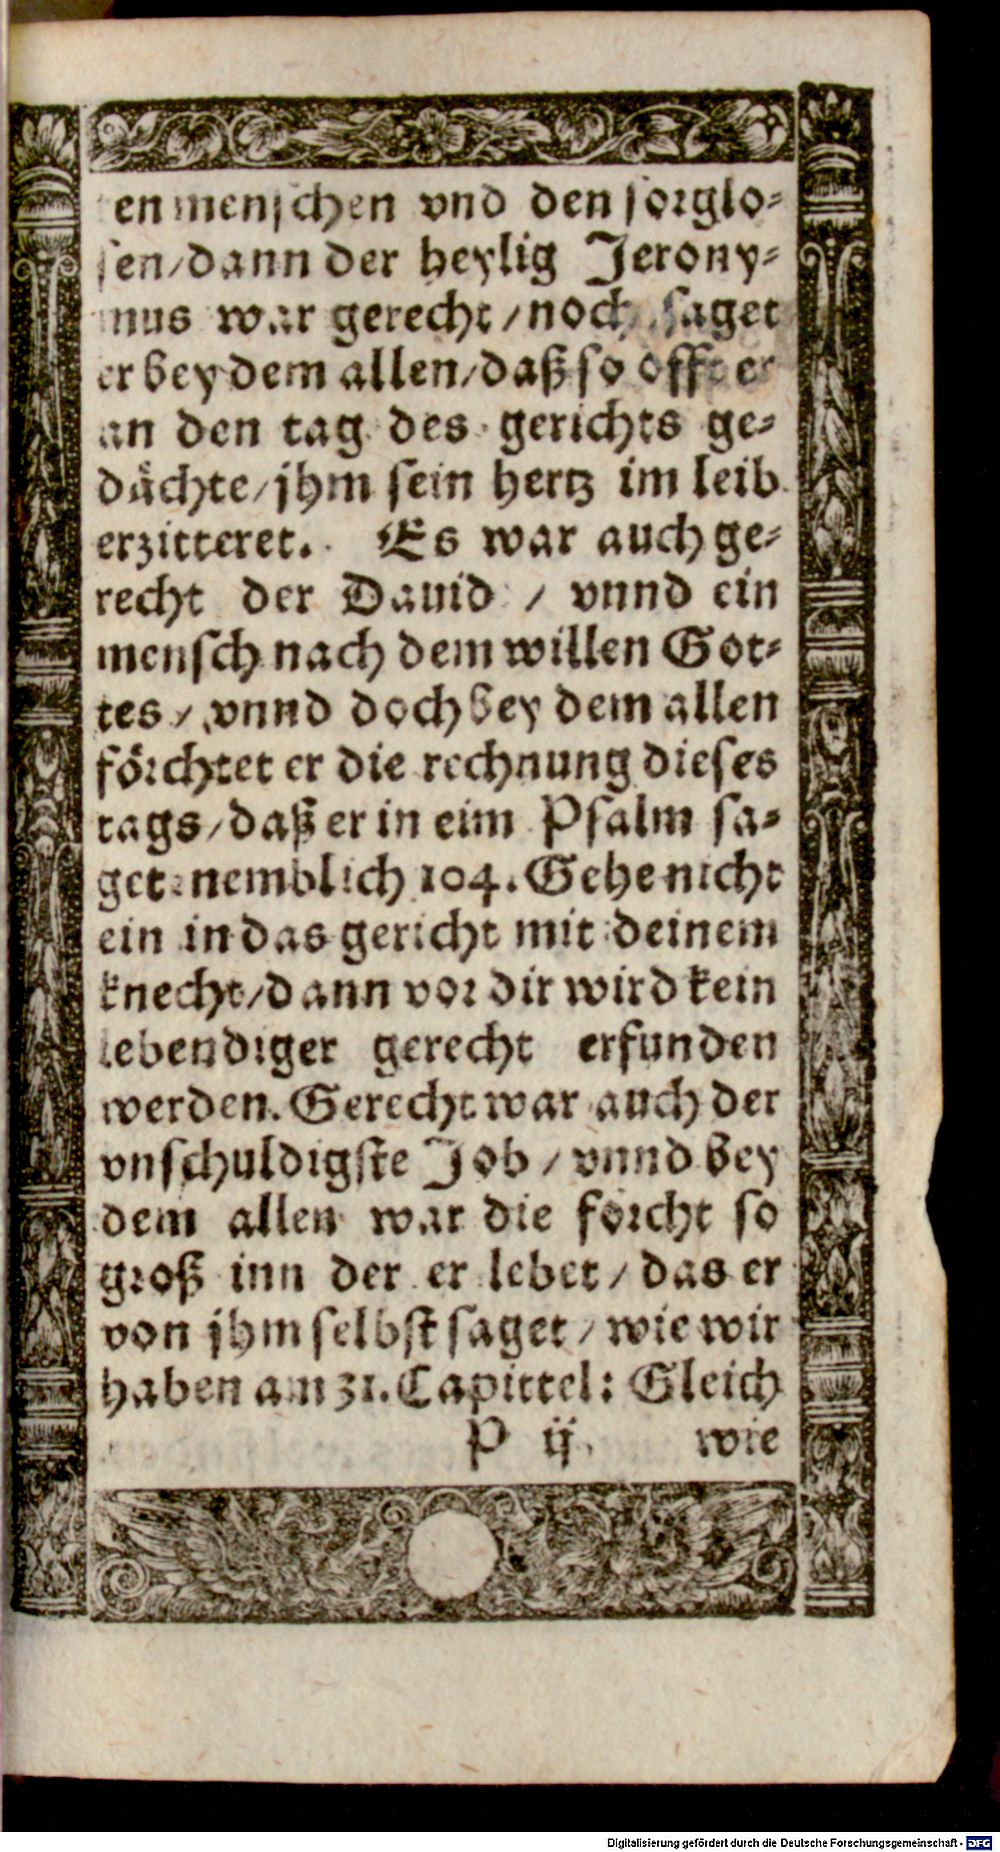 ten menschen vnd den sorglo-
sen/dann der heylig Jerony-
mus war gerecht/noch saget
er bey dem allen/daß so offt er
an den tag des gerichts ge-
dächte/jhm sein hertz im leib
erzitteret. Es war auch ge-
recht der Dauid / vnnd ein
mensch nach dem willen Got-
tes / vnnd doch bey dem allen
förchtet er die rechnung dieses
tags/daß er in eim Psalm sa-
get: nemblich 104. Gehe nicht
ein in das gericht mit deinem
knecht/dann vor dir wird kein
lebendiger gerecht erfunden
werden. Gerecht war auch der
vnschuldigste Job / vnnd bey
dem allen war die forcht so
groß inn der er lebet / das er
von jhm selbst saget / wie wir
haben am 31. Capittel: Gleich
P ij. wie
Digitalisierung gefördert durch die Deutsche Forschungsgemeinschaft - DFG